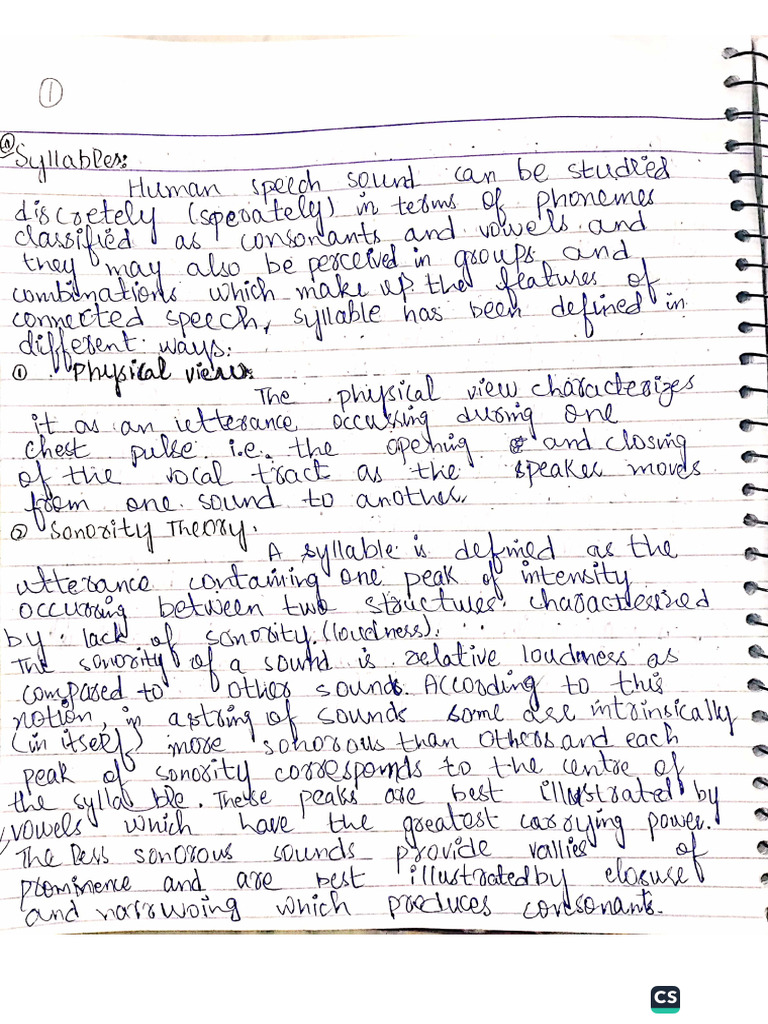 ①
ⓐ Syllables:
Human speech sound can be studied
discretely (sperately) in terms of phonemes
classified as consonants and vowels and
they may also be perceived in groups and
combinations which make up the features of
connected speech, syllable has been defined in
different ways.
① Physical view:
The physical view characterizes
it as an utterance occurring during one
chest pulse i.e. the opening and closing
of the vocal tract as the speaker moves
from one sound to another.
② Sonority Theory.
A syllable is defined as the
utterance containing one peak of intensity
occuring between two structures characterized
by lack of sonority. (loudness).
The sonority of a sound is relative loudness as
compared to other sounds. According to this
notion, in a string of sounds some are intrinsically
(in itself) more sonorous than others and each
peak of sonority corresponds to the centre of
the syllable. These peaks are best illustrated by
vowels which have the greatest carrying power.
The less sonorous sounds provide vallies of
prominence and are best illustrated by closure
and narrwoing which produces consonants.
CS